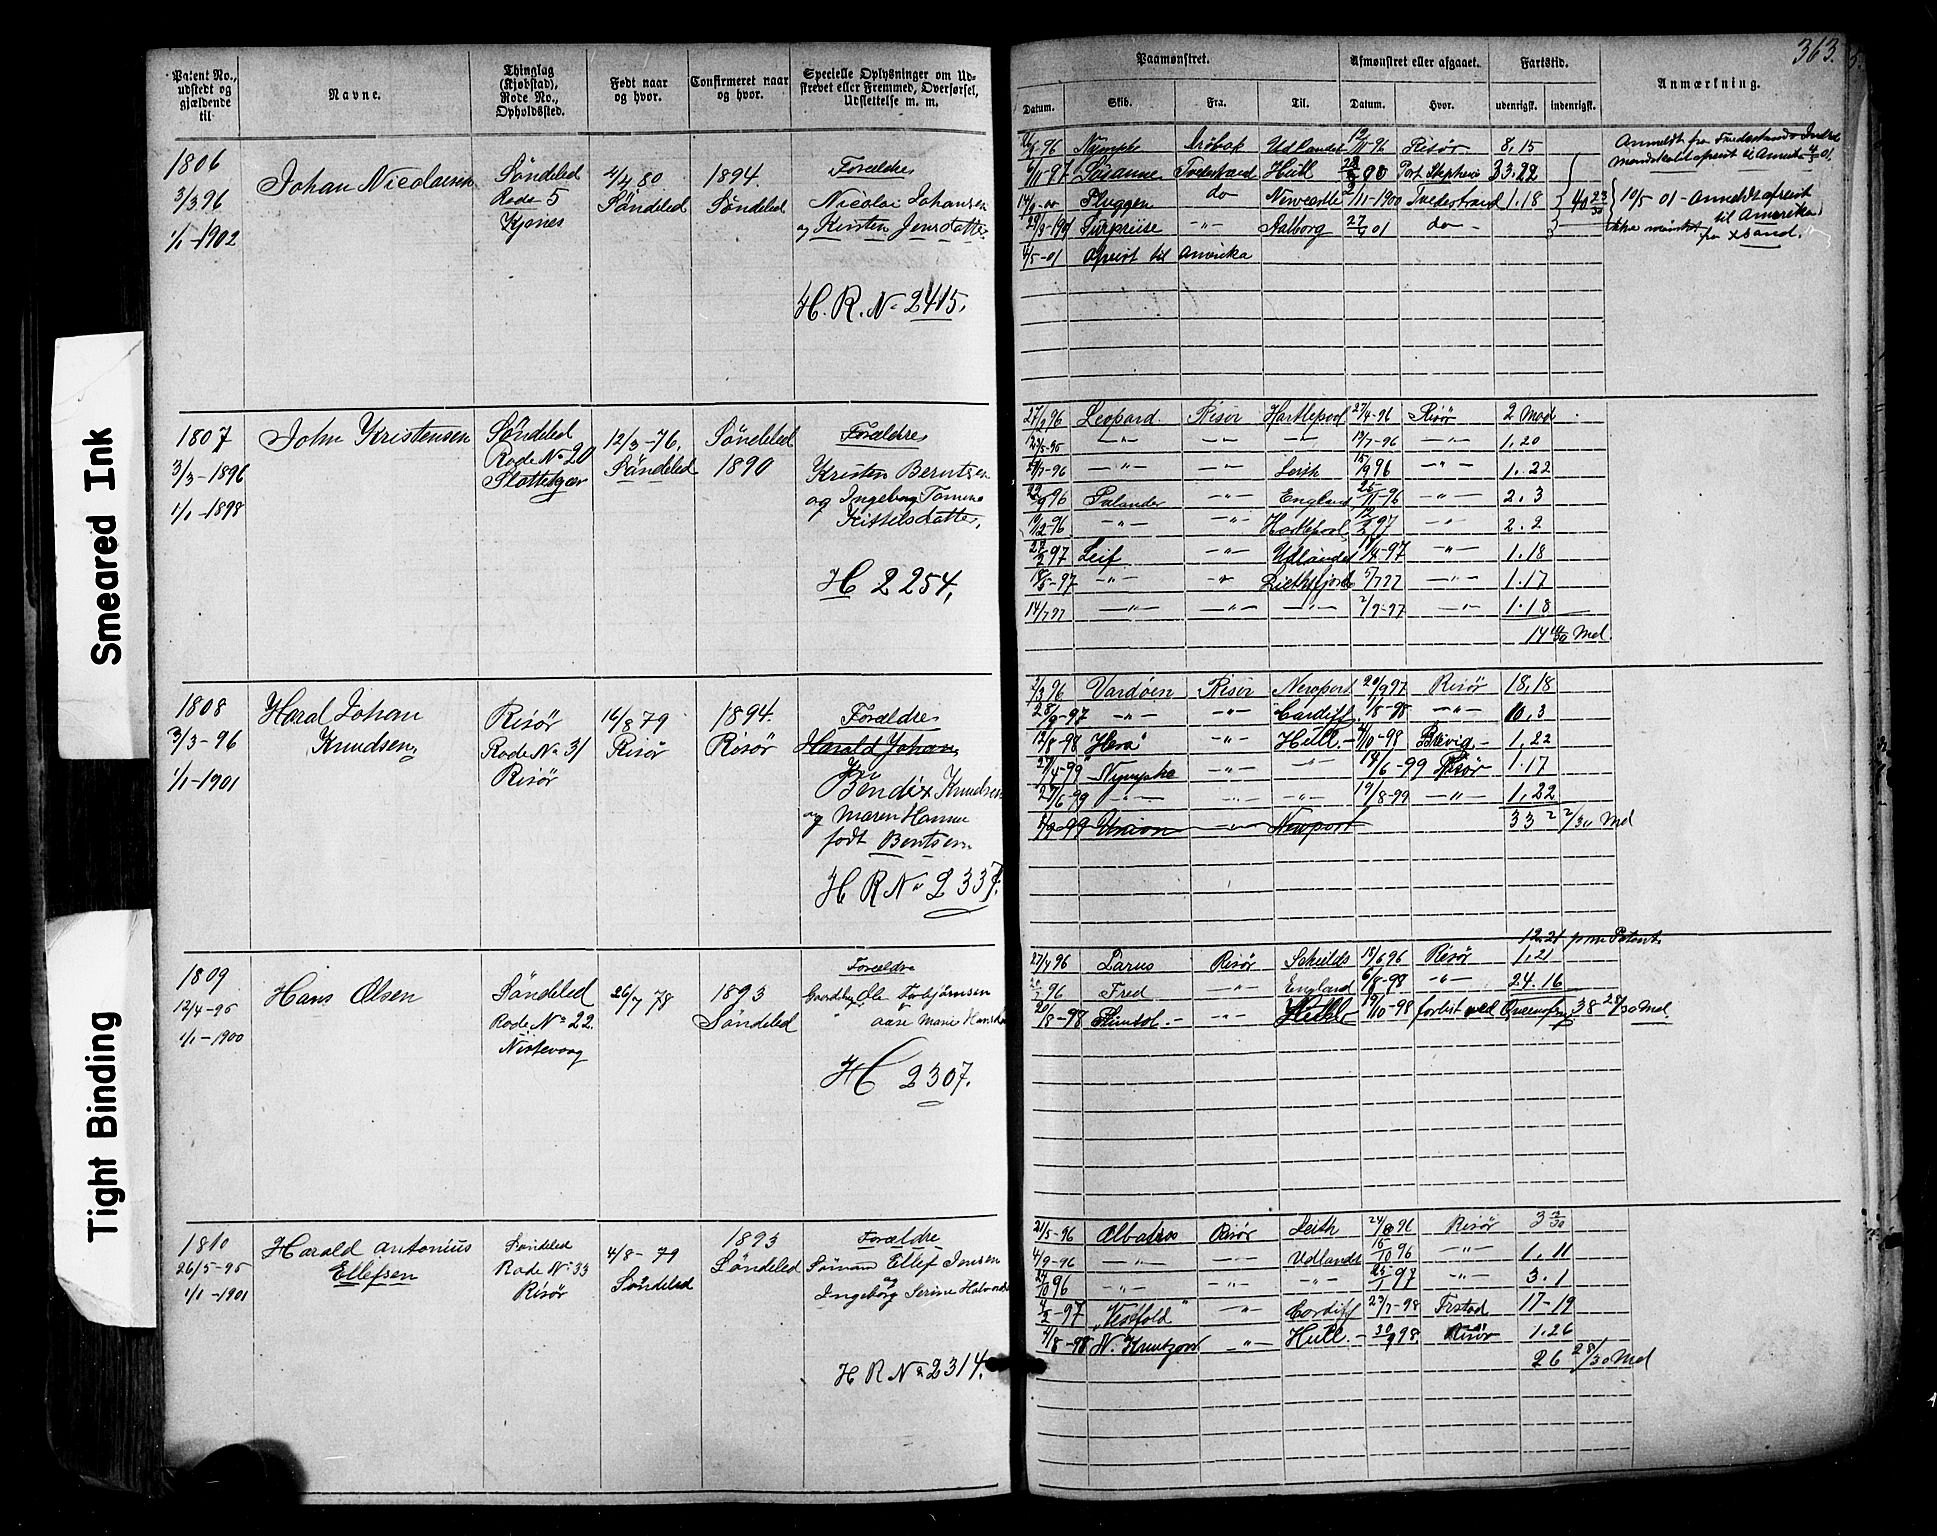 363.
Patent No., udstedt og gjældende til
Navne.
Thinglag (Kjøbstad), Rode No., Opholdssted.
Født naar og hvor.
Confirmeret naar og hvor.
Specielle Oplysninger om Udstrevet eller Fremmed, Overførsel, Udslettelse m. m.
Paamønstret.
Afmønstret eller afgaaet.
Fartstid.
Anmærkning.
Datum. Skib. Fra. Til. Datum. Hvor. udenrigsk. indenrigsk.
1806
3/3 96
1/1-1902
Johan Nicolaisen
Söndeled
Rode 5
Kjønes
4/4 80
Söndeled
1894.
Söndeled
Forældre
Nicolai Johansen
og Kirsten Jensdatter
H. R. No 2415.
96 Nymphe Udlandet 12/11 96 Risör 8,15
Susanne Tvedestrand Hull Port Stephens 23.22
Fluggen do Newcastle 1/11 1900 Tvedestrand 1.18
Surprise Aalborg 27/4 01 do
/5-01 Afreist til Amerika
40 23/30
10/5 01 Anmeldt afreist
til Amerika
1807
3/3-1896
1/1-1898
John Kristensen
Söndeled
Rode No 20
Slottedgjær
12/3-76,
Söndeled
Söndeled
1890
Forældre
Kristen Berntsen
og Ingeborg Tomine
Kittilsdatter,
H 2254,
27/2 96 Leopard Risör Hartlepool 27/4-96 Risör 2 Mod
-"- -"- -"- 19/7-96 -"- 1,20
29/7-96 -"- -"- Leith 15/9 96 -"- 1.22
22/9 96 Salander -"- England 25/11-96 -"- 2.3
19/12-96 -"- -"- 12/2 97 -"- 2.2
22/2 97 Leif -"- Udlandet 18/4-97 -"- 1.18
18/5-97 -"- -"- 5/7 97 -"- 1.17
14/7 97 -"- -"- -"- 2/9-97 -"- 1.18
14 Md.
1808
3/3-96
1/1-1901
Haral Johan
Knudsen
Risör
Rode No 31
Risör
16/8 79
Risör
1894.
Risör
Forældre
Harald Johan
Bendix Knudsen
og Maren Hanne
født Bentsen
H R No 2337.
3/3 96 Vardöen Risör Newport 20/9 97 Risör 18,18
28/9-97 -"- -"- Cardiff 1/8-98 -"- 10,3
12/8-98 "Hera" -"- Hull - 4/10-98 1,22
27/4-99 Nymphe -"- -"- 14/6-99 Risör 1.17
27/6-99 -"- -"- -"- 19/8-99 -"- 1,22
/9-99 Union -"- Newport 33 2/30 Md
1809
12/4-96
1/1-1900
Hans Olsen
Söndeled
Rode No 22.
Nistevaag
26/7 78
1893
Söndeled
Forældre
Ole Torbjørnsen
Aase Marie
H 2307.
12,21 Patent
27/4 96 Larus Risör Schields 18/6 96 Risör 1,21
96 Fred -"- England 6/8-98 -"- 24.16
20/8-98 -"- Hull 19/10-98 forlist ved 38 28/30 Md
1810
26/5-96
1/1-1901
Harald Antonius
Ellefsen
Söndeled
Rode No 33
Risör
4/8-79
Söndeled
1893
Söndeled
Forældre
Sömand Ellef Jensen
og
Ingeborg Serine
H R No 2314.
21/5-96 Albatros Risör Leith 24/8 96 Risör 3 3/30
4/9-96 -"- Udlandet 15/10 96 -"- 1,11
24/10 96 -"- -"- -"- 25/1 97 -"- 3.1
/2-97 "Vestfold" -"- Cardiff 23/7-98 Frstad 17-19
4/8-98 N. Knutzon -"- Hull - 30/9 98 Risör 1.26
26 28/30 Md
Smeared Ink
Tight Binding